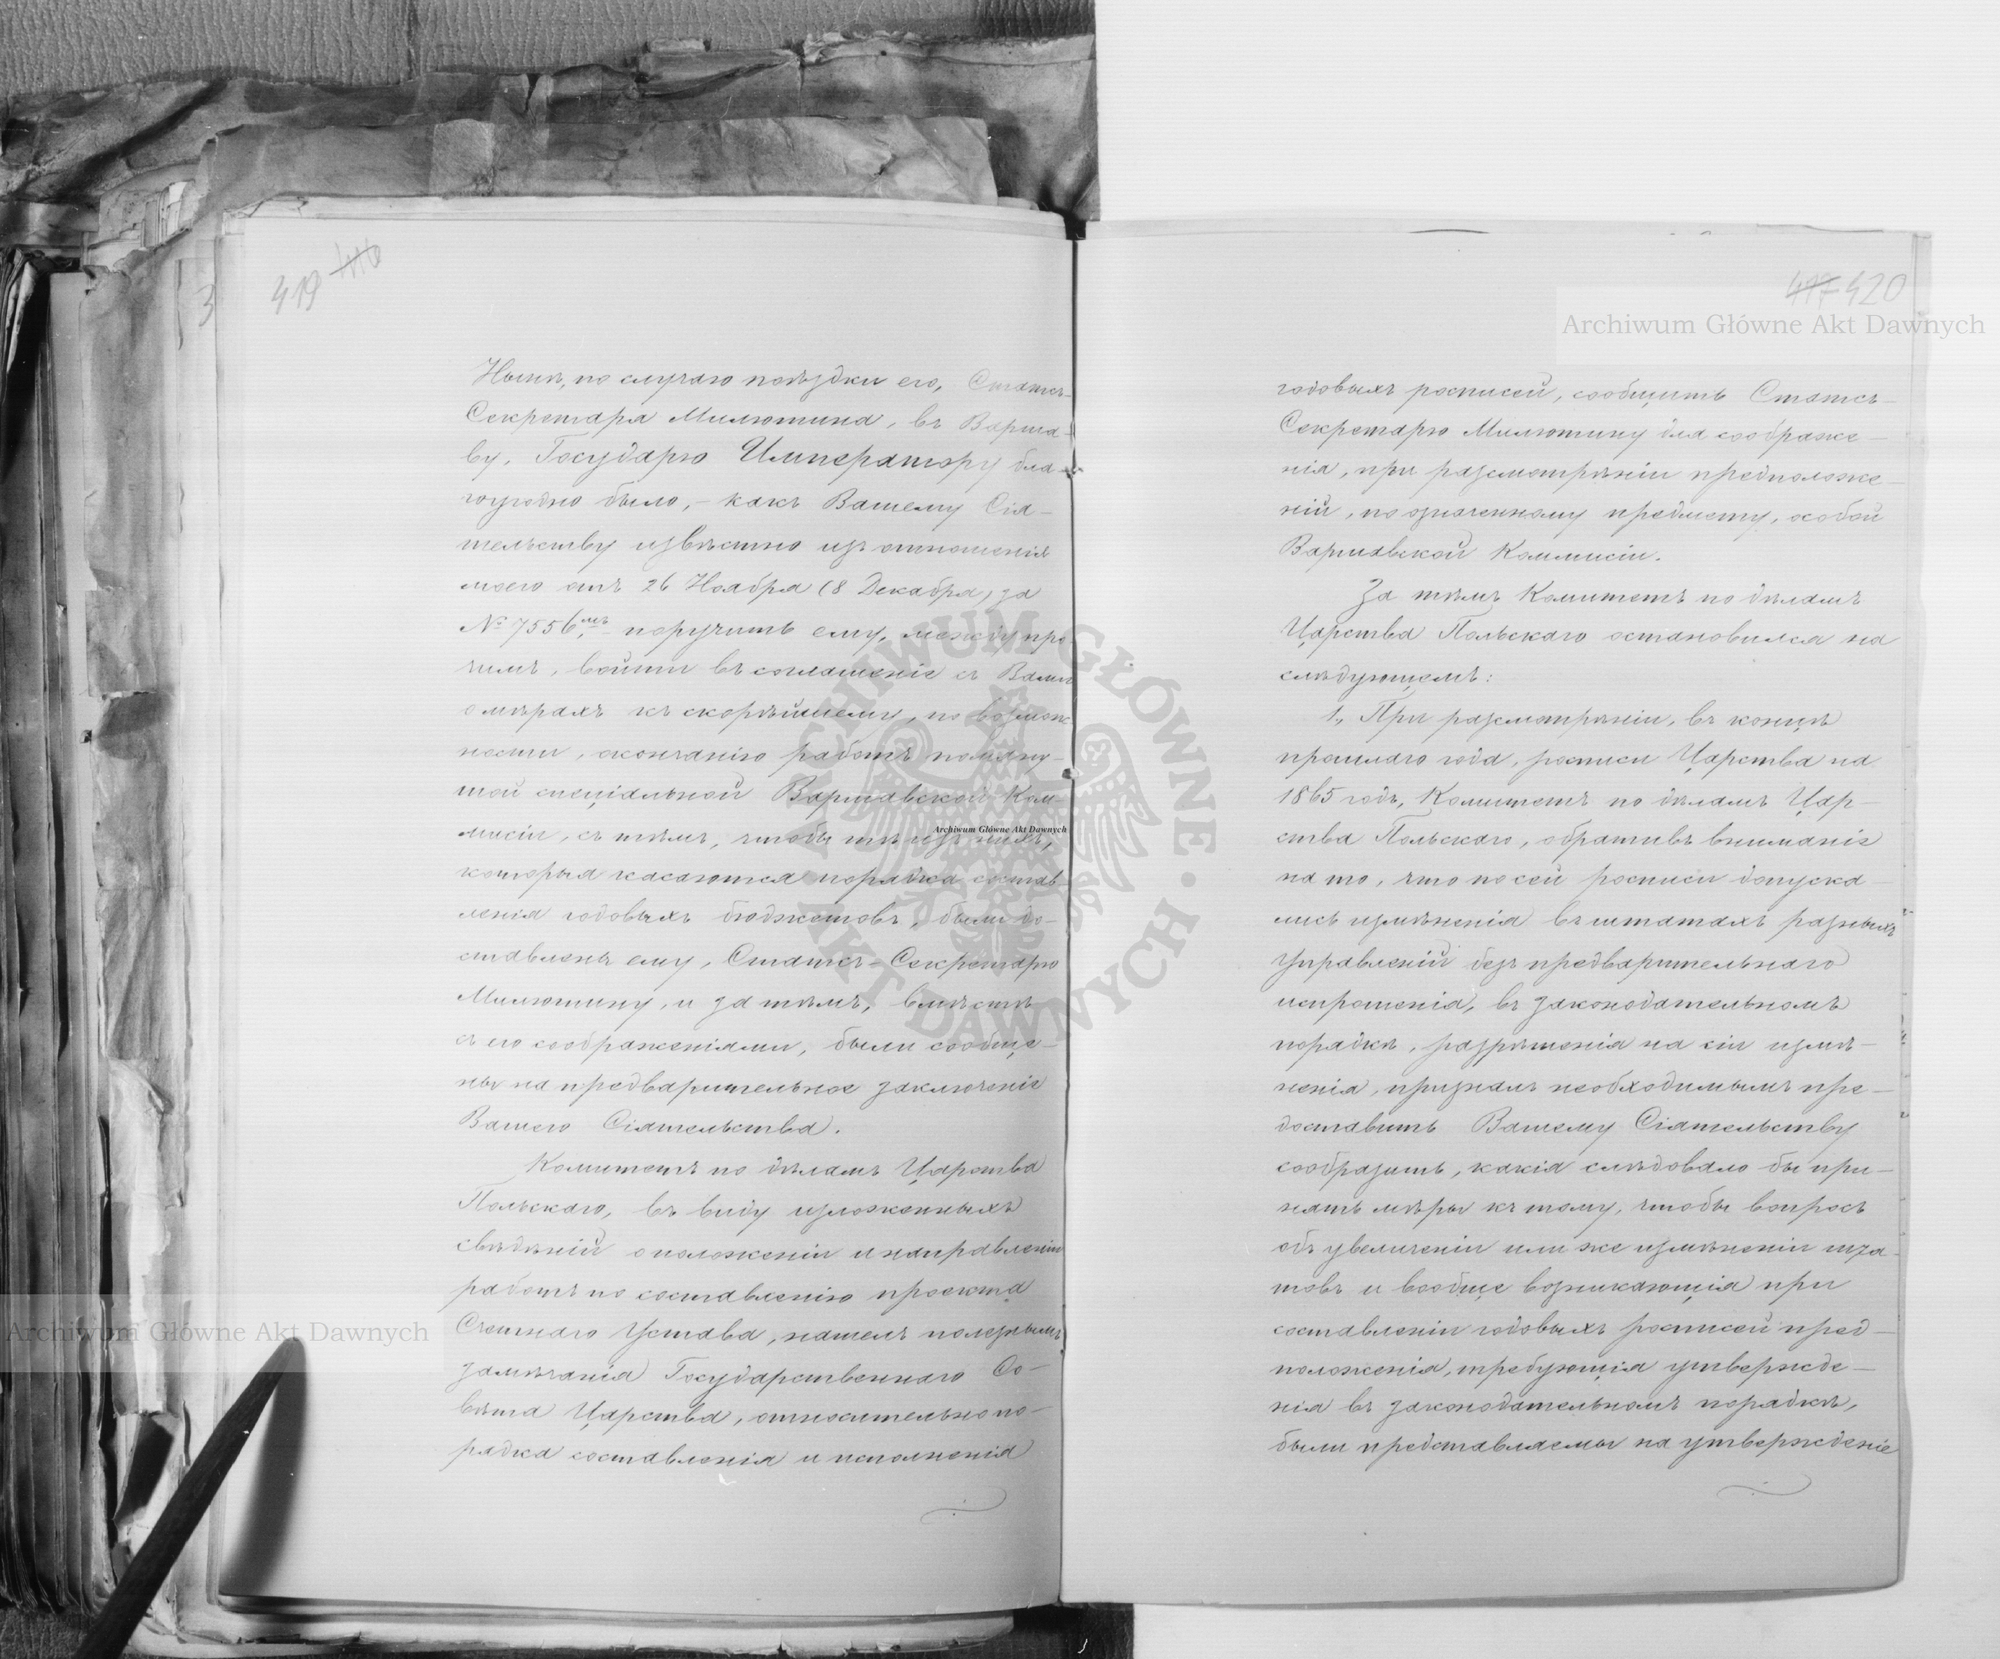 419 410
3
Нынѣ, по случаю поѣздки его, Статсъ-
Секретаря Милютина, въ Варша-
ву, Государю Императору бла-
гоугодно было, – какъ Вашему Сія-
тельству извѣстно изъ отношенія
моего отъ 26 Ноября (8 Декабря) за
№ 7556мъ, – поручить ему, между про-
чимъ, войти въ соглашеніе съ Вами
о мѣрахъ къ скорѣйшему, по возмож-
ности, окончанію работъ помяну-
той спеціальной Варшавской Ком-
мисіи, съ тѣмъ, чтобы тѣ изъ нихъ,
которыя касаются порядка состав-
ленія годовыхъ бюджетовъ, были до-
ставлены ему, Статсъ-Секретарю
Милютину, и за тѣмъ, вмѣстѣ
съ его соображеніями, были сообще-
ны на предварительное заключеніе
Вашего Сіятельства.
Комитетъ по дѣламъ Царства
Польскаго, въ виду изложенныхъ
свѣдѣній о положеніи и направленіи
работъ по составленію проекта
Счетнаго Устава, нашелъ полезнымъ
замѣчанія Государственнаго Со-
вѣта Царства, относительно по-
рядка составленія и исполненія
417 420
годовыхъ росписей, сообщить Статсъ-
Секретарю Милютину для соображе-
нія, при разсмотрѣніи предположе-
ній, по означенному предмету, особой
Варшавской Коммисіи.
За тѣмъ Комитетъ по дѣламъ
Царства Польскаго остановился на
слѣдующемъ:
1., При разсмотрѣніи, въ концѣ
прошлаго года, росписи Царства на
1865 годъ, Комитетъ по дѣламъ Цар-
ства Польскаго, обративъ вниманіе
на то, что по сей росписи допуска-
лись измѣненія въ штатахъ разныхъ
Управленій безъ предварительнаго
испрошенія, въ законодательномъ
порядкѣ, разрѣшенія на сіи измѣ-
ненія, призналъ необходимымъ пре-
доставить Вашему Сіятельству
сообразить, какія слѣдовало бы при-
нять мѣры къ тому, чтобы вопросъ
объ увеличеніи или же измѣненіи шта-
товъ и вообще возникающія при
составленіи годовыхъ росписей пред-
положенія, требующія утвержде-
нія въ законодательномъ порядкѣ,
были представляемы на утвержденіе
Archiwum Główne Akt Dawnych
Archiwum Główne Akt Dawnych
Archiwum Główne Akt Dawnych
ARCHIWUM GŁÓWNE · AKT DAWNYCH ·